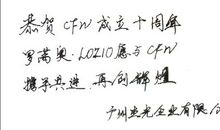 恭贺 CFW 成立十周年
罗蒂奥·LOZIO愿与CFW
携手共进 再创辉煌
广州兆光企业有限